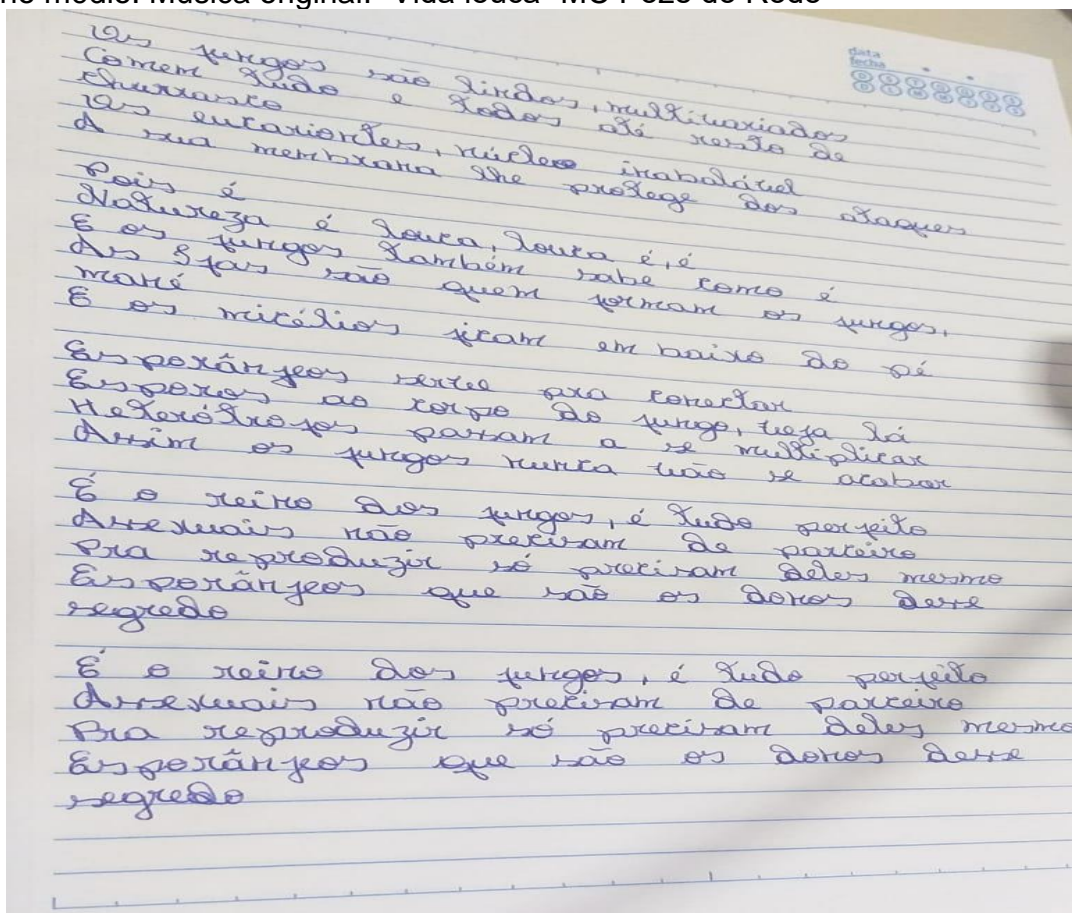 no médio. Música original: "Vida louca" MC Poze do Rodo
data
fecha
Os fungos são lindos, multivariados
Comem tudo e todos até resto de
churrasco
Os eucariontes, núcleo inabalável
A sua membrana lhe protege dos ataques
Pois é
Natureza é louca, louca é, é
E os fungos também sabe como é
As Ifas são quem formam os fungos,
mané
E os micélios ficam em baixo do pé
Esporânfeos serve pra conectar
Esporos ao corpo do fungo, veja lá
Heterótrofos passam a se multiplicar
Assim os fungos nunca vão se acabar
É o reino dos fungos, é tudo perfeito
Assexuais não precisam de parceiro
Pra reproduzir só precisam deles mesmo
Esporânfeos que são os donos desse
segredo
É o reino dos fungos, é tudo perfeito
Assexuais não precisam de parceiro
Pra reproduzir só precisam deles mesmo
Esporânfeos que são os donos desse
segredo